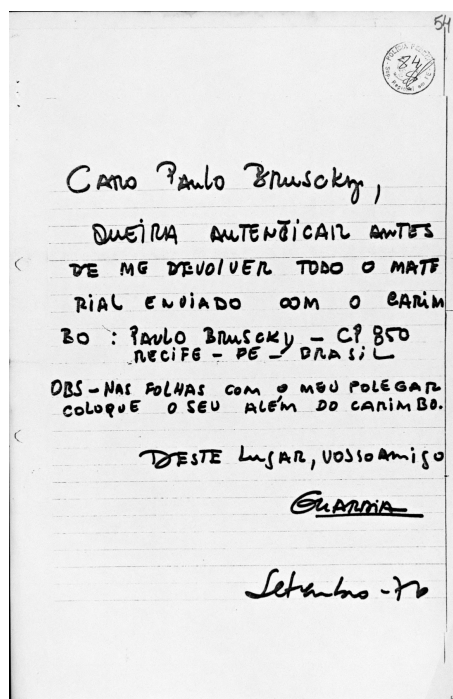 54
84
Caro Paulo Bruscky,
QUEIRA AUTENTICAR ANTES
DE ME DEVOLVER TODO O MATE
RIAL ENVIADO COM O CARIM
BO : PAULO BRUSCKY - CP. 850
RECIFE - PE - BRASIL
OBS - NAS FOLHAS COM O MEU POLEGAR
COLOQUE O SEU ALÉM DO CARIMBO.
DESTE LUGAR, VOSSO AMIGO
Setembro - 76